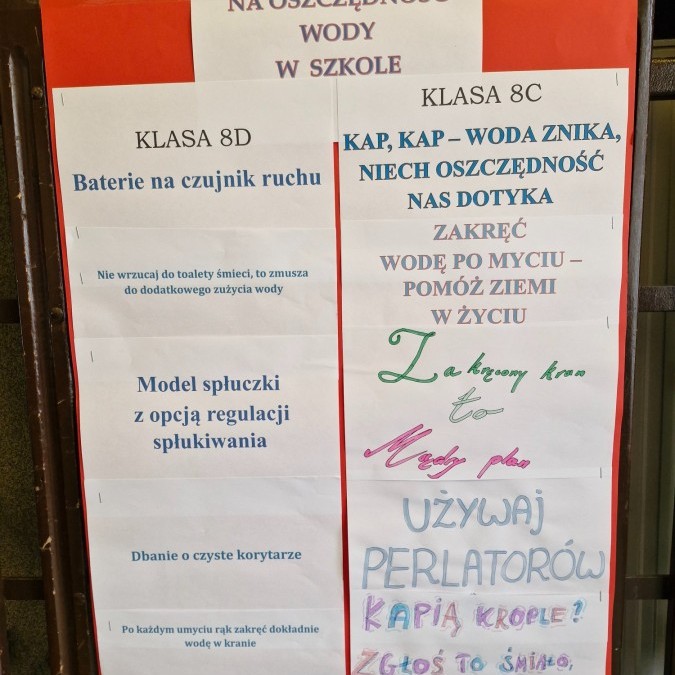 NA OSZCZĘDNOŚĆ
WODY
W SZKOLE
KLASA 8D
Baterie na czujnik ruchu
Nie wrzucaj do toalety śmieci, to zmusza
do dodatkowego zużycia wody
Model spłuczki
z opcją regulacji
spłukiwania
Dbanie o czyste korytarze
Po każdym umyciu rąk zakręć dokładnie
wodę w kranie
KLASA 8C
KAP, KAP – WODA ZNIKA,
NIECH OSZCZĘDNOŚĆ
NAS DOTYKA
ZAKRĘĆ
WODĘ PO MYCIU –
POMÓŻ ZIEMI
W ŻYCIU
Zakręcony kran
to
Mądry plan
UŻYWAJ
PERLATORÓW
KAPIĄ KROPLE?
ZGŁOŚ TO ŚMIAŁO,